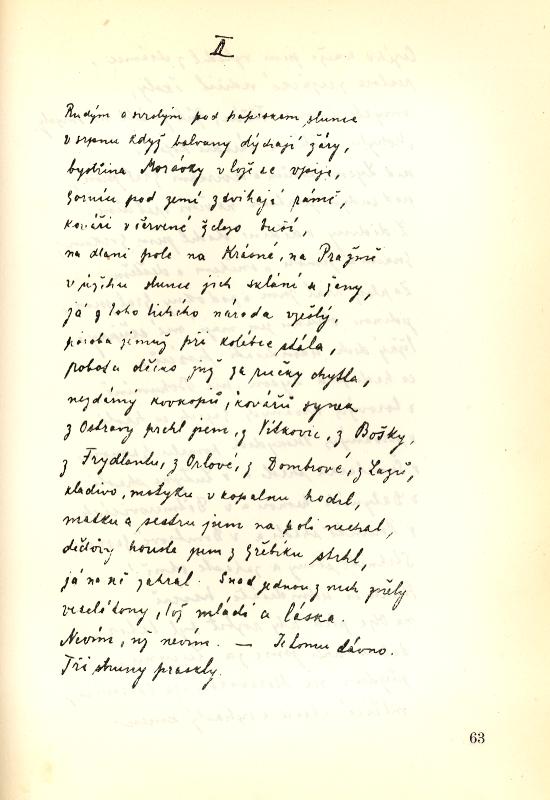 II
Rudým a svislým pod paprskem slunce
v srpnu když balvany dýchají žáry,
bystřina Morávky v loži se vpije,
horníci pod zemí zdvihají rámě,
kováři v červené železo buší,
na dlani pole na Krásné, na Pražmě
v úžehu slunce jich sklání se ženy,
já z toho tichého národa vzešlý,
poroba jemuž při kolébce stála,
robota děcko již za ručky chytla,
nezdárný kovkopů, kovářů synek
z Ostravy prchl jsem, z Vítkovic, z Bašky,
z Frydlantu, z Orlové, z Dombrové, z Lazů,
kladivo, motyku v kopalnu hodil,
matku a sestru jsem na poli nechal,
dědovy housle jsem z hřebíku strhl,
já na ně zahrál. Snad jednou z nich zněly
veselé tóny, též mládí a láska.
Nevím, již nevím. — Je tomu dávno.
Tři struny praskly.
63